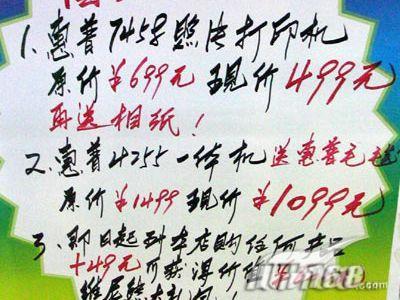 1、惠普7458照片打印机
原价￥699元 现价499元
再送相纸！
2、惠普4255一体机 送惠普毛毯
原价￥1499 现价￥1099元
3、即日起到本店购任何产品
+49元可获得价值
维尼熊大礼包